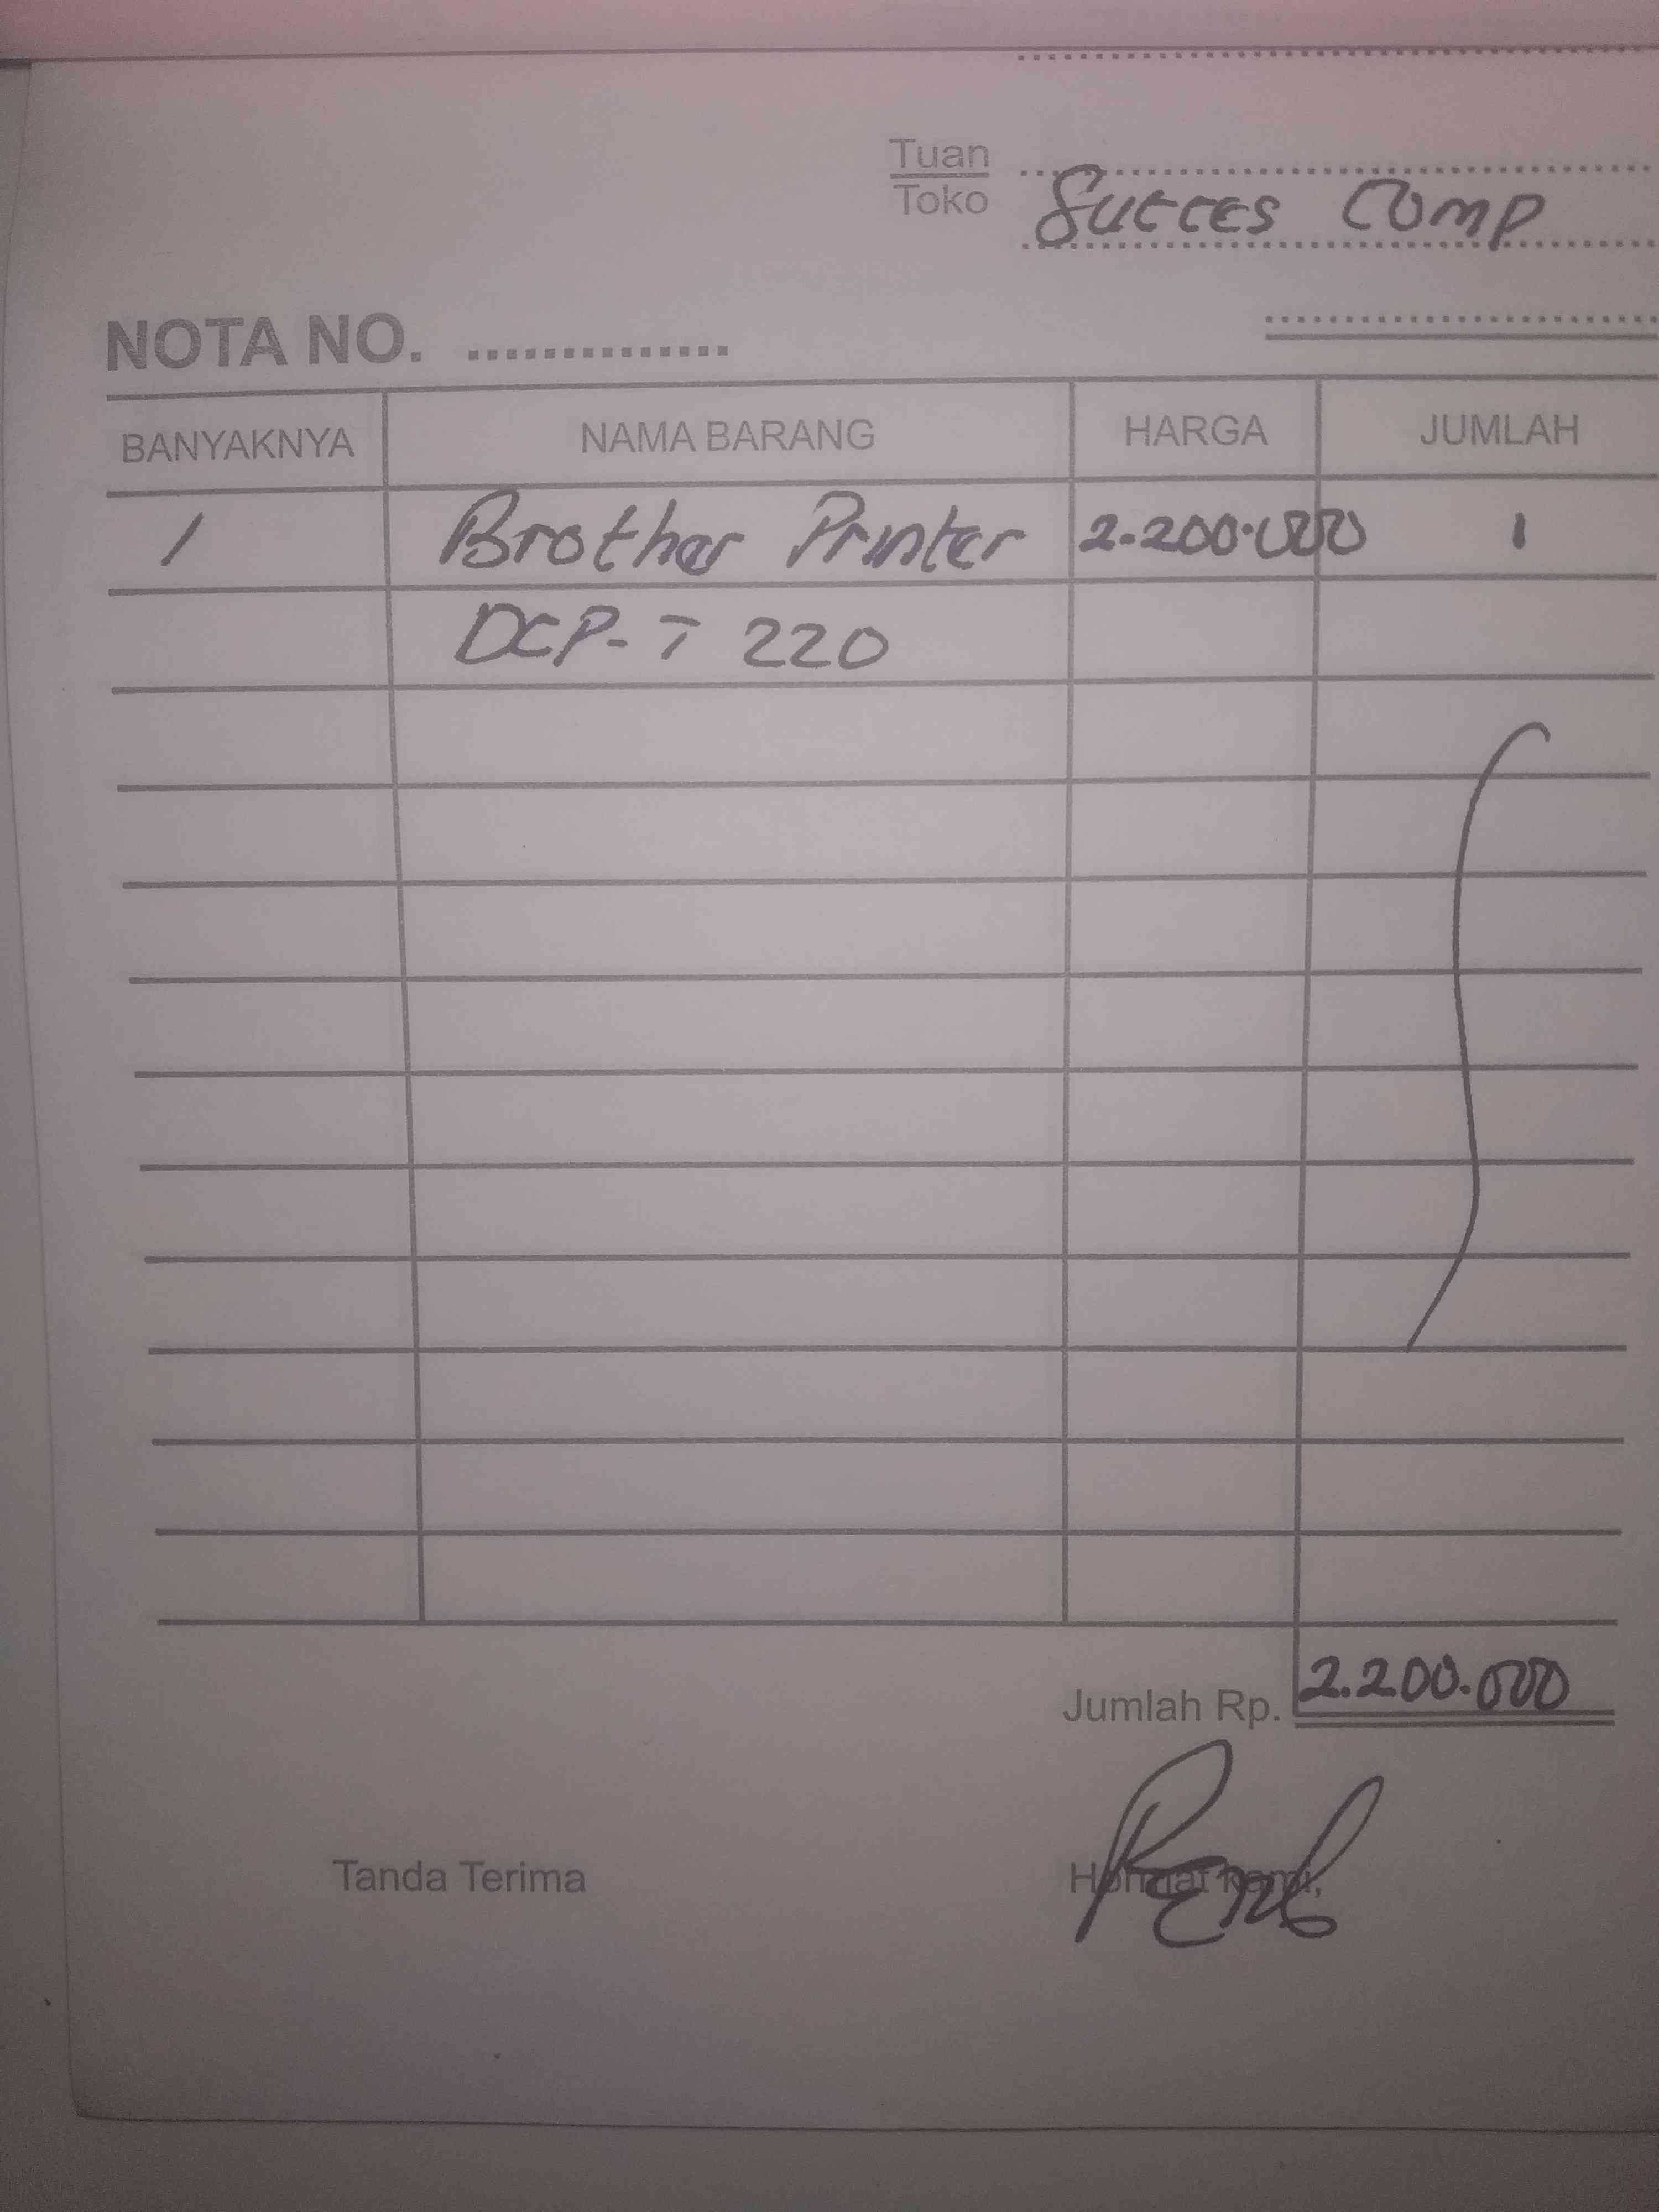 Tuan
Toko Succes Comp
NOTA NO. ..............
BANYAKNYA NAMA BARANG HARGA JUMLAH
1 Brother Printer 2.200.000 1
DCP-T 220
Jumlah Rp. 2.200.000
Tanda Terima Hormat kami,